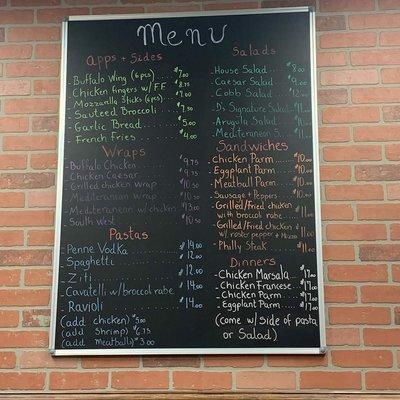 Menu
Apps + Sides
- Buffalo Wing (6 pcs) $7.00
- Chicken fingers w/ FF $8.75
- Mozzarella Sticks (6pcs) $7.00
- Sauteed Broccoli $7.50
- Garlic Bread $5.00
- French Fries $4.00
Wraps
- Buffalo Chicken $9.75
- Chicken Caesar $9.75
- Grilled chicken wrap $10.50
- Mediterranean wrap $10.50
- Mediterranean w/ chicken $13.00
- South west $10.50
Pastas
- Penne Vodka $14.00
- Spaghetti $12.00
- Ziti $12.00
- Cavatelli w/ broccoli rabe $14.50
- Ravioli $14.00
(add chicken) $5.00
(add Shrimp) $6.75
(add meatballs) $3.00
Salads
- House Salad $8.00
- Caesar Salad $9.00
- Cobb Salad $12
- D's Signature Salad $11
- Arugula Salad $11
- Mediterranean S. $11
Sandwiches
- Chicken Parm $10.00
- Eggplant Parm $10.00
- Meatball Parm $10.00
- Sausage + Peppers $10
- Grilled/Fried chicken with broccoli rabe $11.00
- Grilled/Fried chicken w/ roster pepper + Mozz $11.00
- Philly Steak $11.00
Dinners
- Chicken Marsala $17.00
- Chicken Francese $17.00
- Chicken Parm $17.00
- Eggplant Parm $17.00
(Come w/ side of pasta
or Salad)